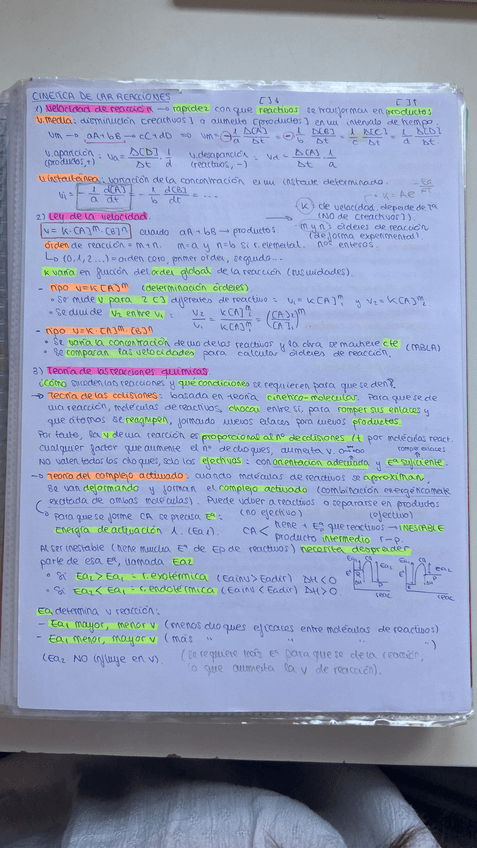 CINETICA DE LAS REACCIONES
1) Velocidad de reacción → rapidez con que reactivos se trasforman en productos
[ ]↓ [ ]↑
V. media: disminución [reactivos] o aumento [productos] en un intervalo de tiempo
Vm → aA + bB → cC + dD ⇒ Vm = -1/a Δ[A]/Δt = -1/b Δ[B]/Δt = 1/c Δ[C]/Δt = 1/d Δ[D]/Δt
V. aparición (productos, +) : Va = Δ[D]/Δt · 1/d V. desaparición (reactivos, -) : Vd = Δ[A]/Δt · 1/a
V. instantánea: variación de la concentración en un instante determinado.
Vi = -1/a d[A]/dt = -1/b d[B]/dt = ...
2) Ley de la velocidad
V = K·[A]m·[B]n cuando aA + bB → productos
K cte velocidad, depende de Tª (NO de [reactivos])
m y n: órdenes de reacción (de forma experimental) nos enteros.
orden de reacción = m+n. m=a y n=b si r. elemental.
↳ (0, 1, 2...) = orden cero, primer orden, segundo...
K varía en función del orden global de la reacción (sus unidades).
- Tipo V = K [A]m (determinación órdenes)
• Se mide V para 2 [ ] diferentes de reactivo: V1 = K[A]1m y V2 = K[A]2m
• Se divide V2 entre V1: V2/V1 = K[A]2m/K[A]1m = ([A]2/[A]1)m
- Tipo V = K·[A]m·[B]n
• Se varía la concentración de uno de los reactivos y la otra se mantiene cte
• Se comparan las velocidades para calcular órdenes de reacción. (TABLA)
3) Teoría de las reacciones químicas
¿Cómo suceden las reacciones y qué condiciones se requieren para que se den?
→ Teoría de las colisiones: basada en teoría cinético-molecular. Para que se de
una reacción, moléculas de reactivos, chocan entre sí, para romper sus enlaces y
que átomos se reagrupen, formando nuevos enlaces para nuevos productos.
Por tanto, la v de una reacción es proporcional al nº de colisiones /t por moléculas react.
cualquier factor que aumente el nº de choques, aumenta v.
No valen todos los choques, solo los efectivos: con orientación adecuada y Eª suficiente.
→ Teoría del complejo activado: cuando moléculas de reactivos se aproximan,
se van deformando y forman el complejo activado (combinación energéticamente
excitada de ambas moléculas). Puede volver a reactivos o separarse en productos
(no efectivo) (efectivo)
Para que se forme CA se precisa Eª:
Energía de activación 1. (Ea1). CA < tiene + Eª que reactivos → INESTABLE
producto intermedio r-p.
Al ser inestable (tiene mucha Eª de EP de reactivos) necesita desprender
parte de esa Eª, llamada Ea2
• Si Ea2 > Ea1 = r. exotérmica (Ea inv > Ea dir) ΔH<0
• Si Ea2 < Ea1 = r. endotérmica (Ea inv < Ea dir) ΔH>0
Ea determina v reacción:
- Ea1 mayor, menor v (menos choques eficaces entre moléculas de reactivos)
- Ea1 menor, mayor v (más " " " ")
(Ea2 NO influye en v). (se requiere más E para que se de la reacción,
lo que aumenta la v de reacción).